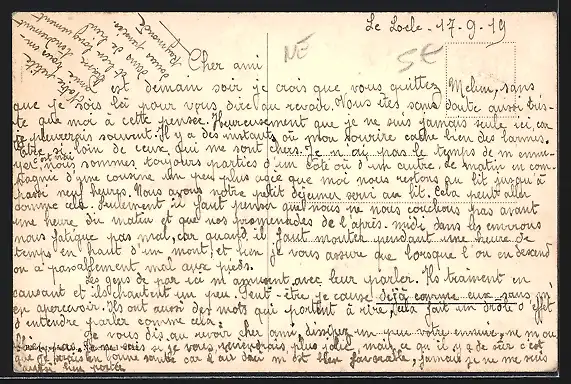 Le Locle - 17-9-19
NE
SE
Cher ami
est demain soir je crois que vous quittez Melun, sans
que je sois là pour vous dire au revoir. Vous êtes sans doute aussi tris-
te que moi à cette pensée. Heureusement que je ne suis jamais seule ici, car
je pleurerais souvent. Il y a des instants où mon sourire cache bien des larmes.
Être si loin de ceux qui me sont chers. Je n'ai pas le temps de m'ennu-
yer nous sommes toujours partis d'un côté ou d'un autre. Le matin en com-
pagnie d'une cousine un peu plus âgée que moi nous restons au lit jusqu'à
neuf heures. Nous avons notre petit déjeuner servi au lit. Cela peut aller
comme cela. Seulement il faut penser que nous ne nous couchons pas avant
une heure du matin et que nos promenades de l'après-midi dans les environs
nous fatigue pas mal, car quand il faut monter pendant une heure de
temps en haut d'un mont, et bien je vous assure que lorsque l'on en descend
on a passablement mal aux pieds.
Les gens de par ici m'amusent avec leur parler. Ils traînent en
causant et ils chantent un peu. Peut-être je cause déjà comme eux sans m'
en apercevoir. Ils ont aussi des mots qui portent à rire, cela fait un drôle d'effet
d'entendre parler comme cela.
Je vous dis au revoir cher ami, dissipez un peu votre ennui, ne m'ou
pas. Je ne sais si je vous reverrai plus joli mais ce qu'il y a de sûr c'est
que je serais en bonne santé car l'air d'ici m'est bien favorable, jamais je ne me suis
aussi bien portée.
Votre petite
amie